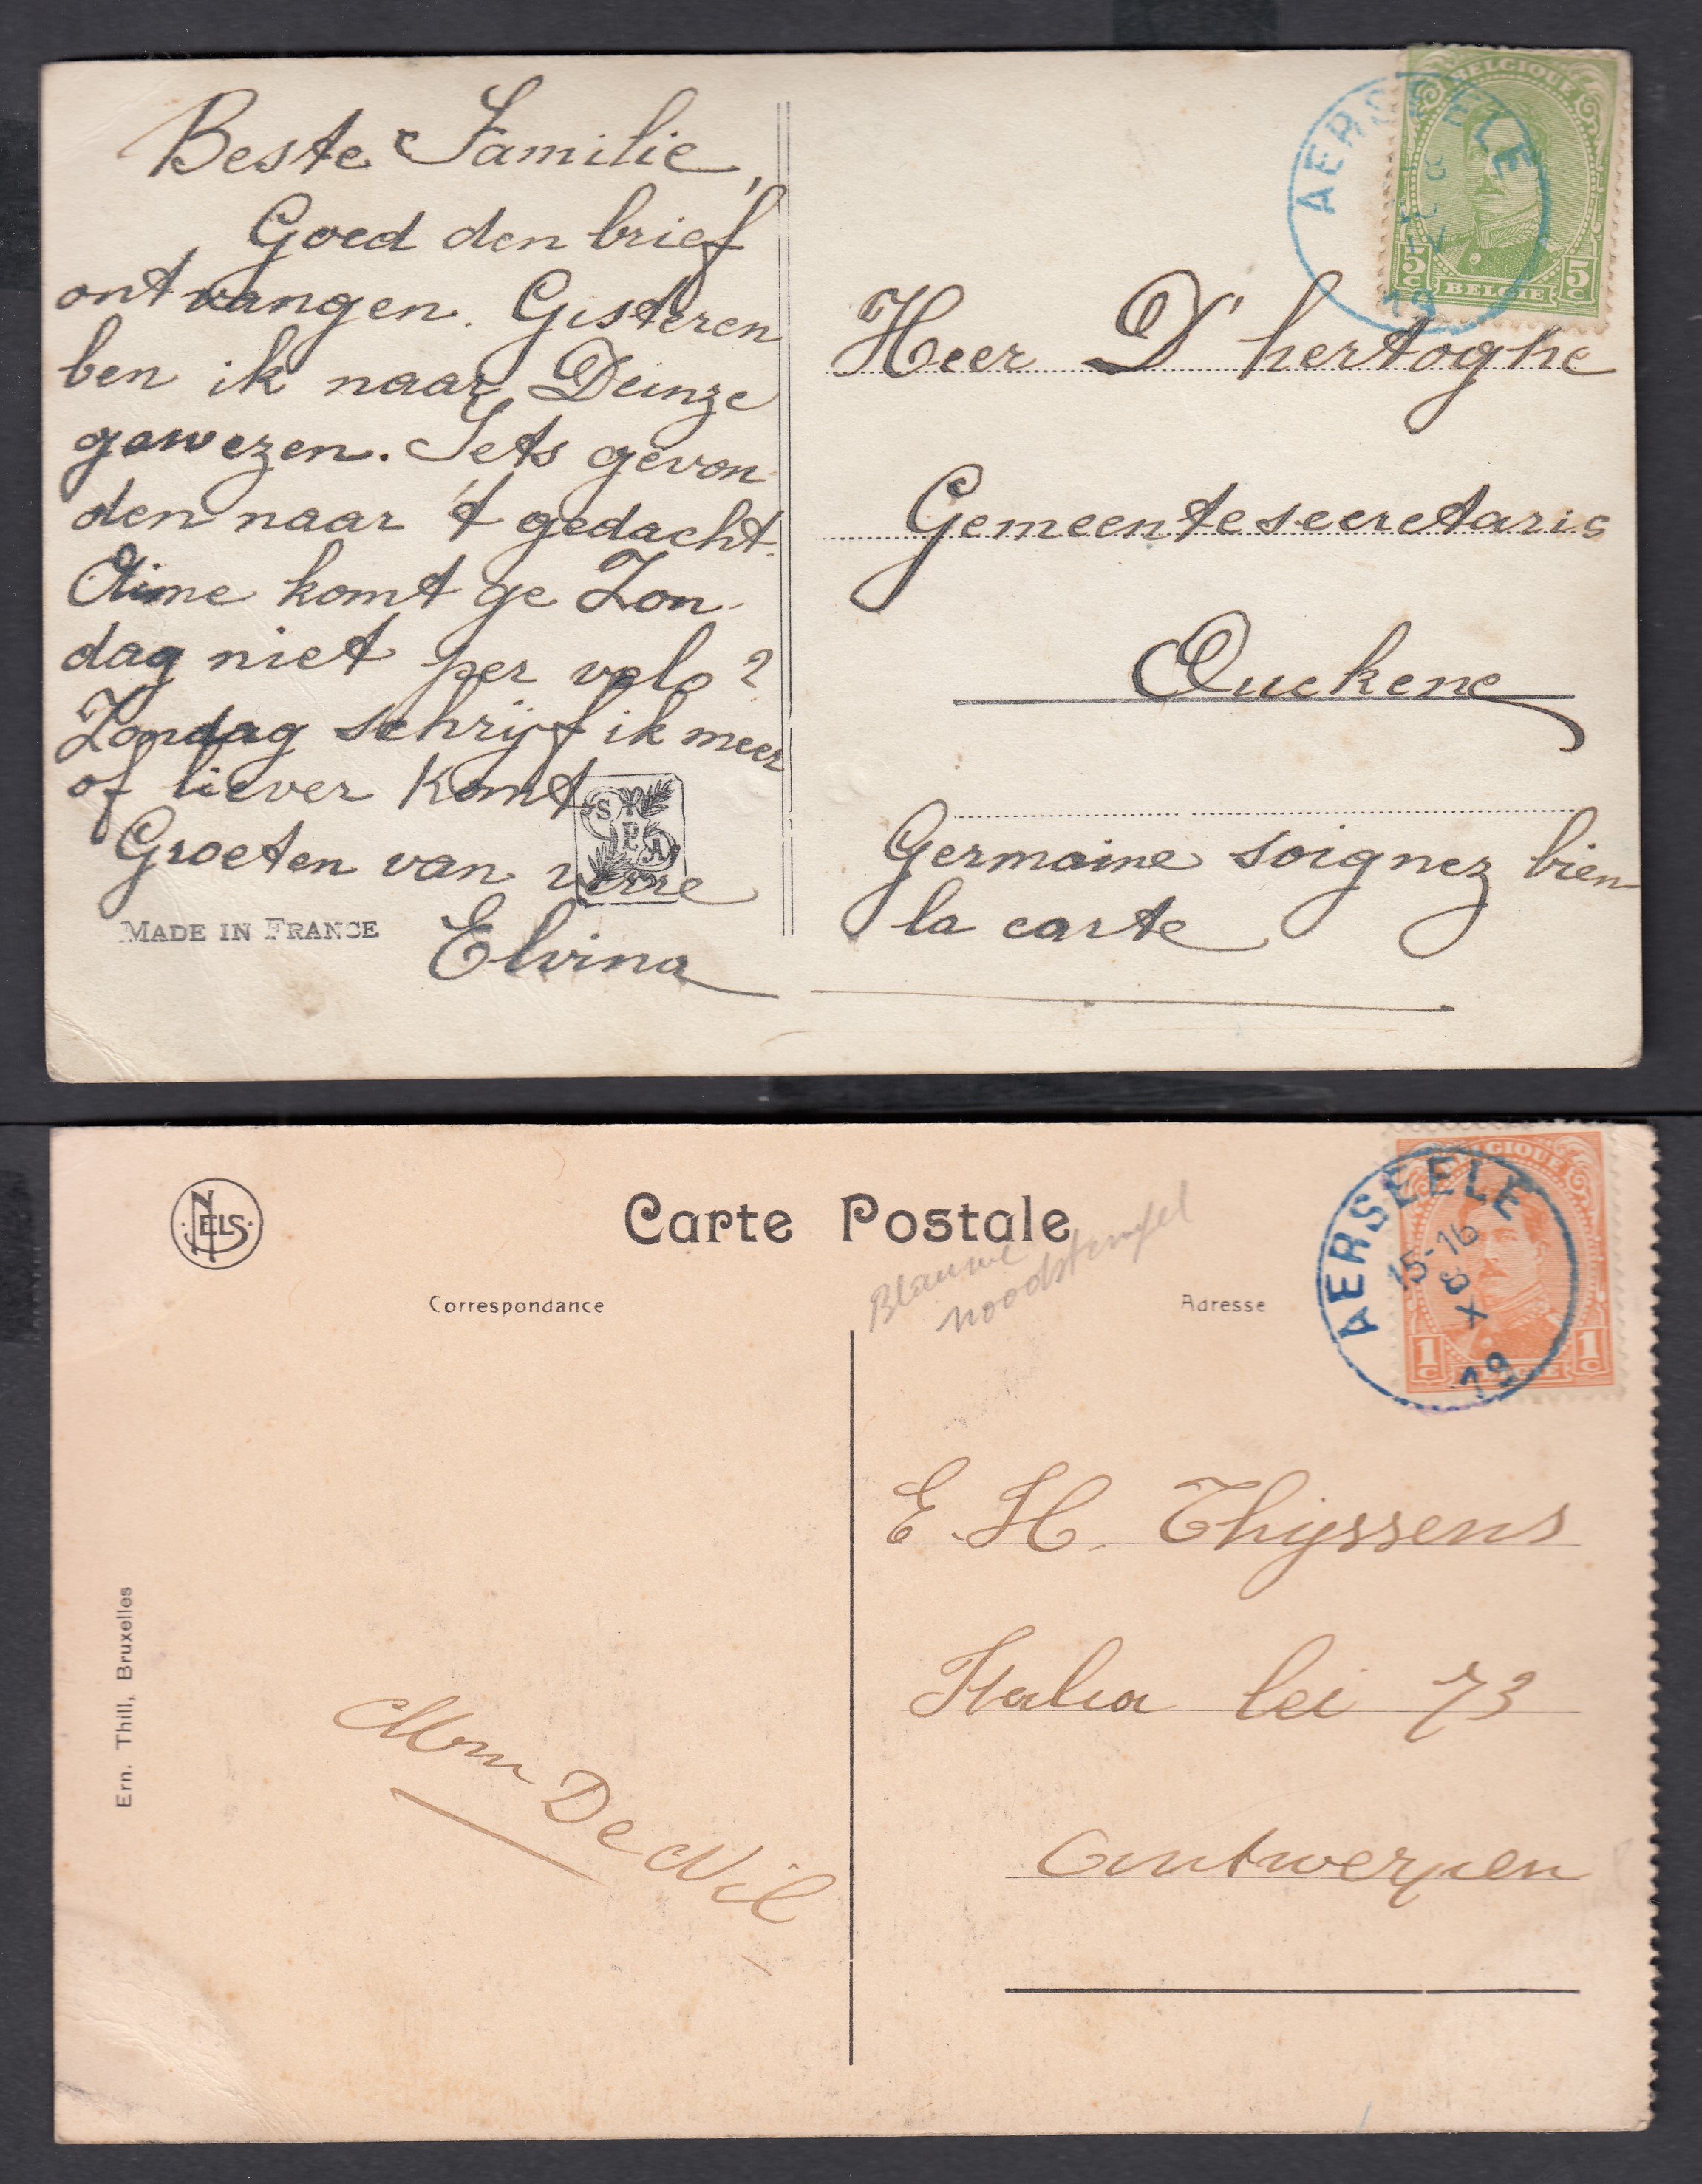 Beste Familie,
Goed den brief
ontvangen. Gisteren
ben ik naar Deinze
gewezen. Iets gevon-
den naar 't gedacht.
Aimé komt ge Zon-
dag niet per velo?
Zondag schrijf ik meer
of liever komt
Groeten van uwe
Elvina
MADE IN FRANCE
SPA
BELGIQUE
5c BELGIE 5c
AERSEELE
19
Heer D'hertoghe
Gemeentesecretaris
Ouckene
Germaine soignez bien
la carte
NELS
Carte Postale
Blauwe
noodstempel
Correspondance
Adresse
BELGIQUE
1c BELGIE 1c
AERSEELE
15-16
8
X
19
E. H. Thyssens
Italia lei 73
Antwerpen
De Nil
Ern. Thill, Bruxelles